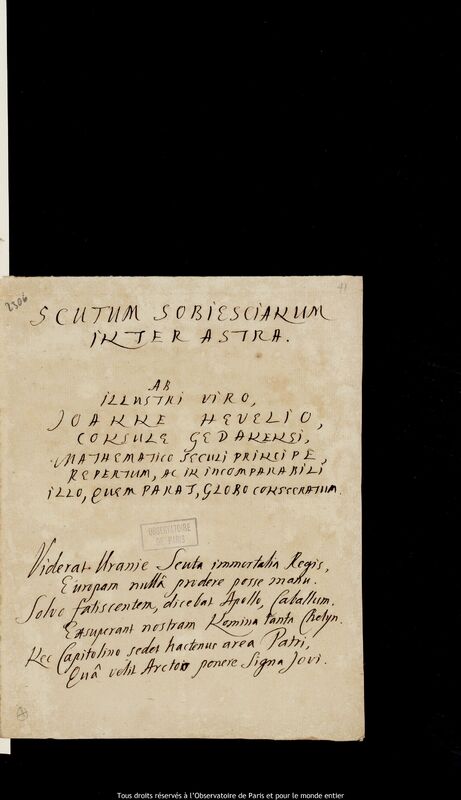 2306
41
SCUTUM SOBIESCIANUM
INTER ASTRA.
AB
ILLUSTRI VIRO,
JOANNE HEVELIO,
CONSULE GEDANENSI,
MATHEMATICO SECULI PRINCIPE,
REPERTUM, AC IN INCOMPARABILI
ILLO, QUEM PARAT, GLOBO CONSECRATUM.
OBSERVATOIRE
DE PARIS
Viderat Uranie Scuta immortalia Regis,
Europam nullâ prodere posse manu.
Solvo fatiscentem, dicebat Apollo, Caballum.
Exsuperant nostram Nomina tanta Chelyn.
Nec Capitolino sedet hactenus area Patri,
Quâ velit Arctoo ponere Signa Jovi.
A
Tous droits réservés à l'Observatoire de Paris et pour le monde entier